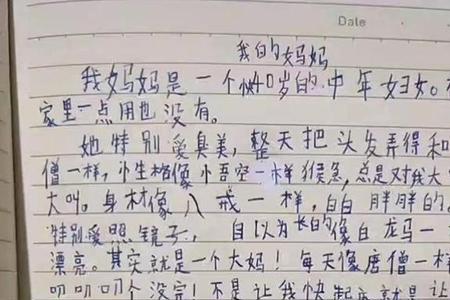 Date
我的妈妈
我妈妈是一个快40岁的中年妇女。
家里一点用也没有。
她特别爱臭美，整天把头发弄得和
僧一样，小生格像小悟空一样猴急，总是对我大
大叫。身材像八戒一样，白白胖胖的。
特别爱照镜子，自以为长的像白龙马一
漂亮。其实就是一个大妈！每天像唐僧一样
叨叨叨个没完！不是让我快起床就是让